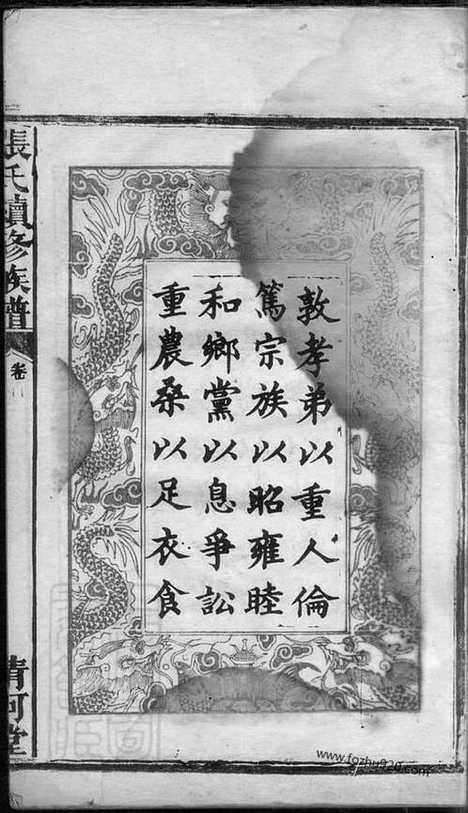 敦孝弟以重人倫
篤宗族以昭雍睦
和鄉黨以息爭訟
重農桑以足衣食
張氏續修族譜
卷
清河堂
www.fozhu920.com